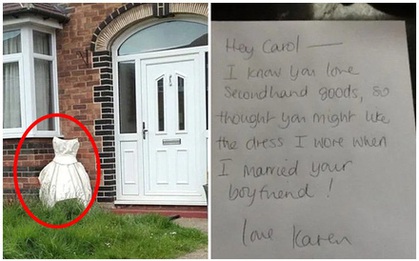 Hey Carol —
I know you love
secondhand goods, so
thought you might like
the dress I wore when
I married your
boyfriend!
love Karen